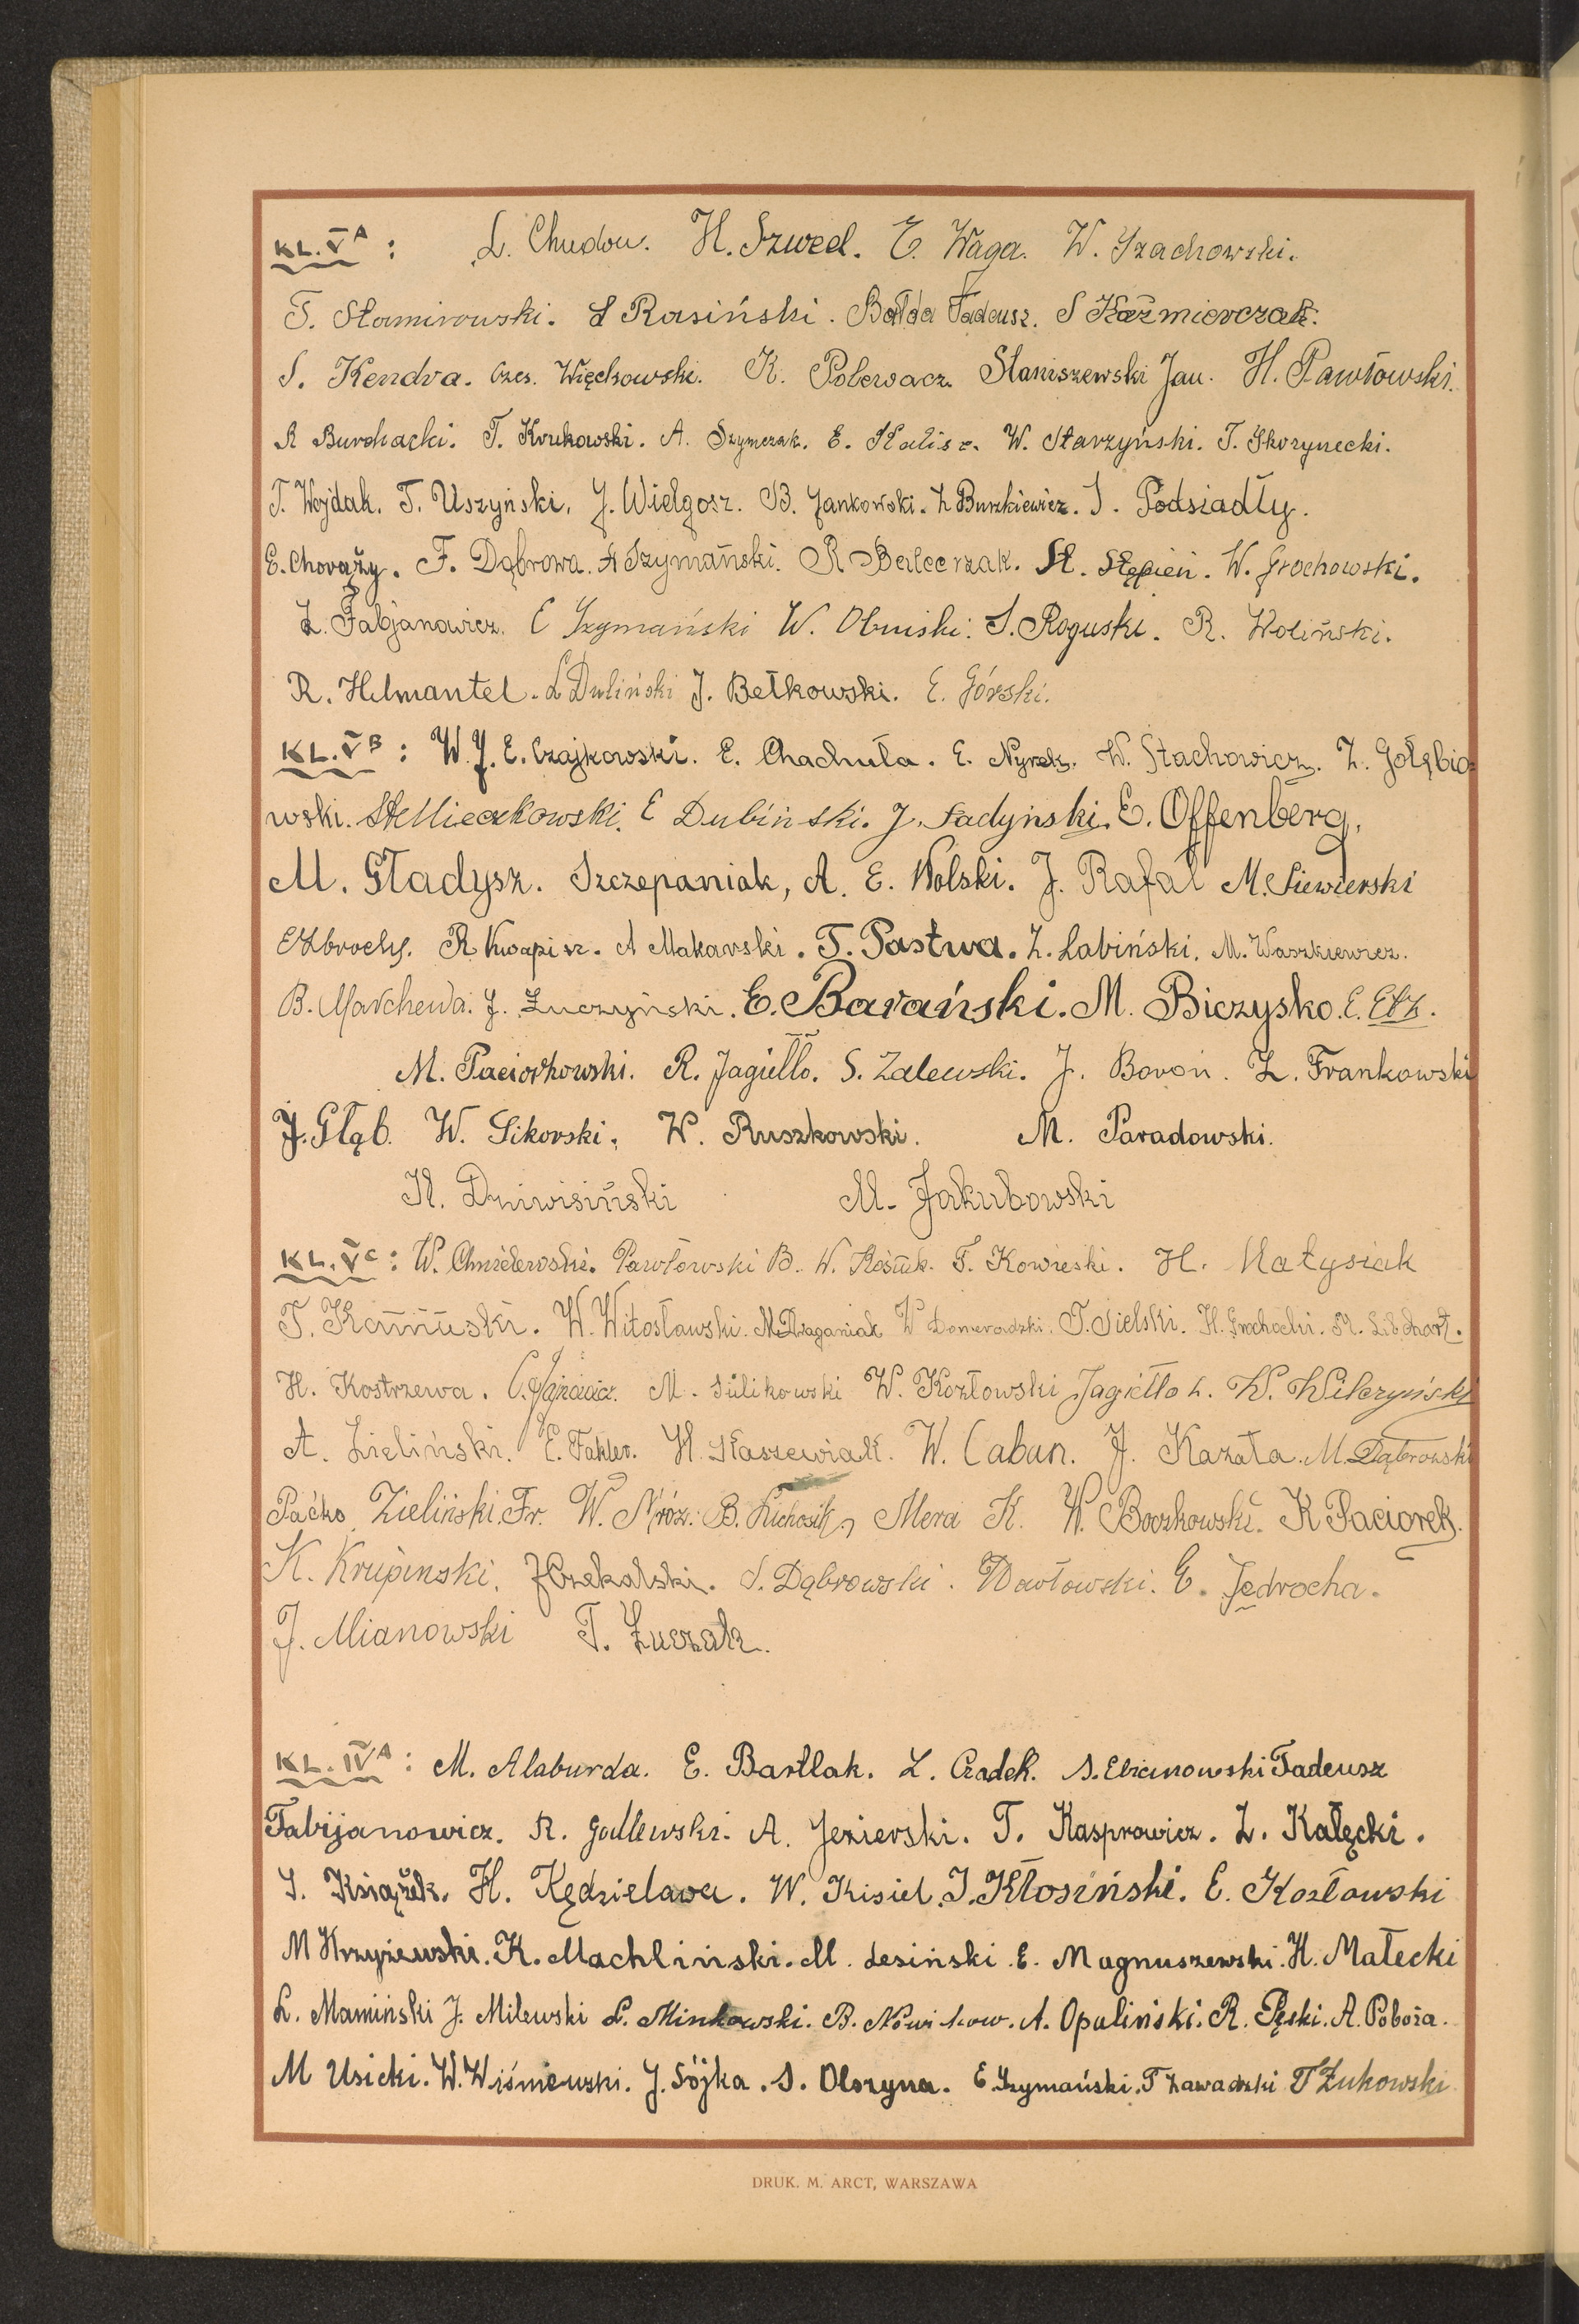 KL. V A : L. Chudou. H. Szwed. E. Waga. W. Szachowski.
T. Sławirowski. S Rosiński. Bałda Tadeusz. S Kaźmierczak.
S. Kendra. Czes. Więckowski. K. Polewacz. Staniszewski Jan. H. Pawłowski.
R Burchacki. T. Krukowski. A. Szymczak. E. Kalisz. W. Starzyński. T. Skorynecki.
T. Wojdak. T. Uszyński. J. Wielgosz. B. Jankowski. Z Burzkiewicz. J. Podsiadły.
E. Chorąży. F. Dąbrowa. A Szymański. R Balcerzak. St. Stępień. W. Grochowski.
Z. Fabjanowicz. E Szymański W. Obniski. S. Roguski. R. Woliński.
R. Helmantel. L Duliński J. Bełkowski. E. Górski.
KL. V B : W. J. E. Czajkowski. E. Chachuła. E. Nyrek. W. Stachowicz. Z. Gołębio-
wski. St Mieczkowski. E Dubiński. J. Sadyński. E. Offenberg.
M. Gładysz. Szczepaniak, A. E. Wolski. J. Rafał M. Siewierski
E Zbrochy. R. Kwapisz. A Makarski. T. Pastwa. Z. Labiński. M. Waszkiewicz.
B. Marchewa. J. Łuczyński. E. Barański. M. Biczysko. E. Ełz.
M. Paciorkowski. R. Jagiełło. S. Zalewski. J. Boroń. Z. Frankowski
J. Głąb. W. Sikorski. W. Ruszkowski. M. Paradowski.
H. Dniwisiński M. Jakubowski
KL. V C : W. Chmielewski. Pawłowski B. W. Rosiak. T. Kowieski. H. Matysiak
T. Kamiński. W. Witosławski. M. Draganiak W Domeradzki. T. Sielski. H. Grochocki. R. Libchart.
H. Kostrzewa. M. Sulikowski W. Kozłowski Jagiełło L. W. Wilczyński
A. Zieliński. E. Fakler. H. Kaszewiak. W. Caban. J. Kazała. M. Dąbrowski
Paćko Zieliński Fr. W. Mróz. B. Lichosik, Mera K. W. Boczkowski. K Paciorek.
K. Krupinski. J Czekalski. S. Dąbrowski. Pawłowski. E. Jędrocha.
J. Mianowski T. Łuczak.
KL. IV A : M. Alaburda. E. Bartlak. L. Czadek. S. Elzanowski Tadeusz
Fabijanowicz. R. Godlewski. A. Jezierski. T. Kasprowicz. Z. Kałęcki.
S. Książek. H. Kędzielawa. W. Kisiel. J. Kłosiński. E. Kozłowski
M Krzyżewski. K. Machliński. M. Lesiński. E. Magnuszewski. H. Małecki
L. Mamiński J. Milewski L. Minkowski. B. Nowikow. A. Opaliński. R. Pęski. A. Poboża.
M Usicki. W. Wiśniewski. J. Sójka. S. Olszyna. E Szymański. T Zawadzki T Żukowski
DRUK. M. ARCT, WARSZAWA